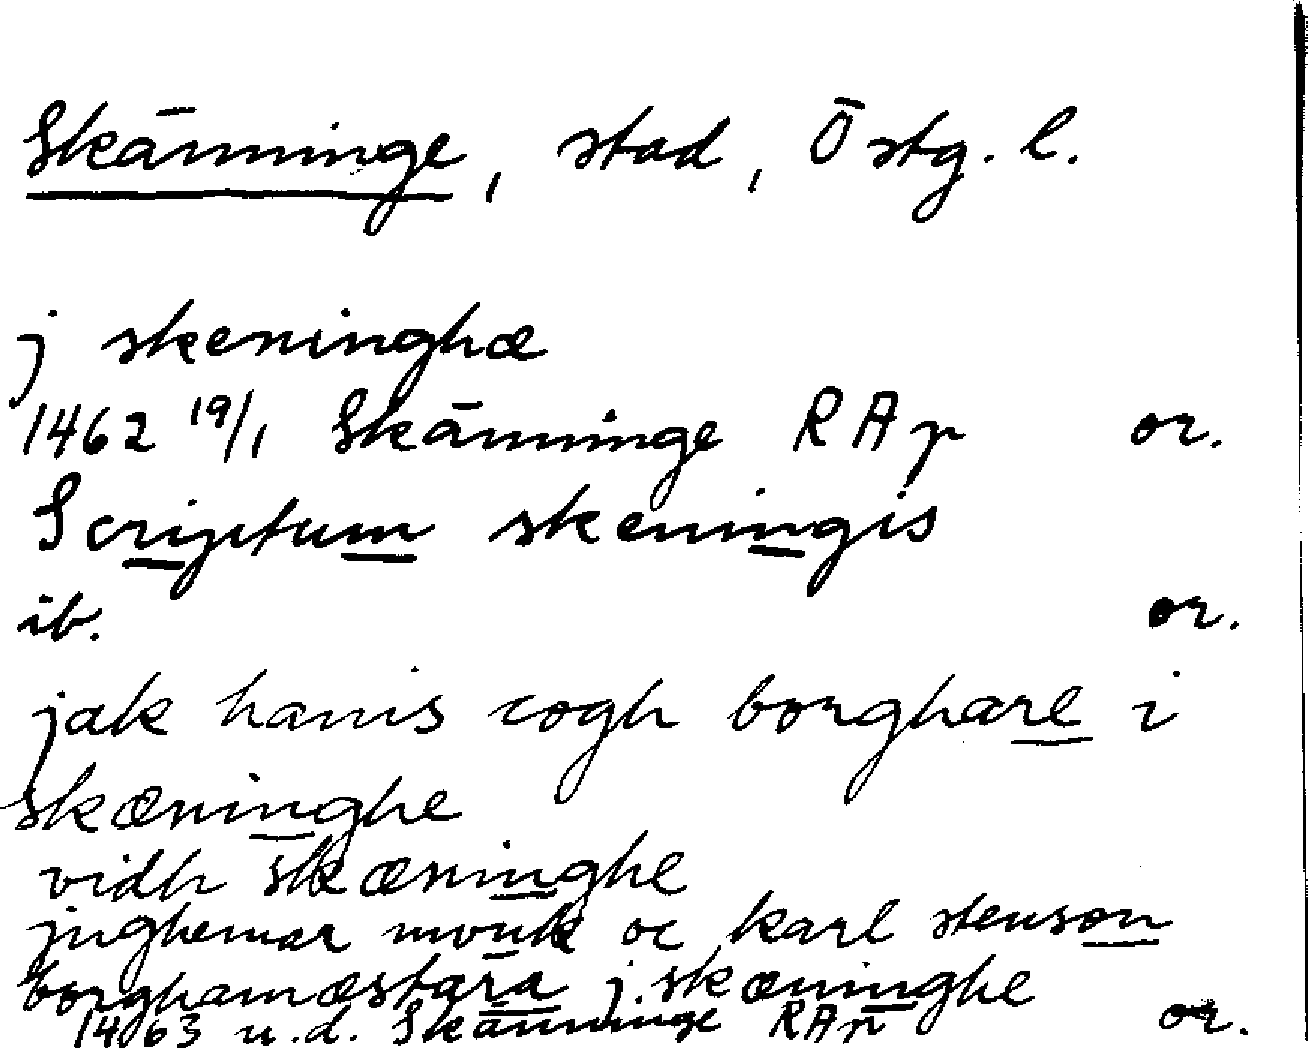 Skänninge, stad, Östg. l.
j skeninghæ
1462 19/1 Skänninge RAp or.
Scriptum skeningis
ib. or.
jak hanis cogh borghare i
skæninghe
vidh skæninghe
jnghemar mvnk oc karl stenson
borghamæstara j skæninghe
1463 u.d. Skänninge RAp or.